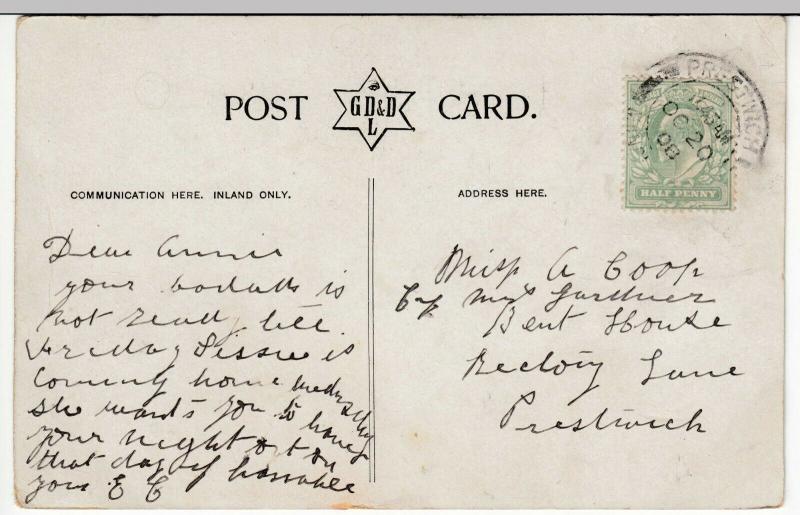 POST CARD.
GD&D
L
PRESTWICH
OC 20
08
HALF PENNY
COMMUNICATION HERE. INLAND ONLY.
ADDRESS HERE.
Dear Annie
your is
not ready till
Friday Lissie is
Coming home wedn
She wants you to haveg
your night out on
that day if
your E C
Miss A Coop
C/o Mrs Gardner
Bent House
Rectory Lane
Prestwich